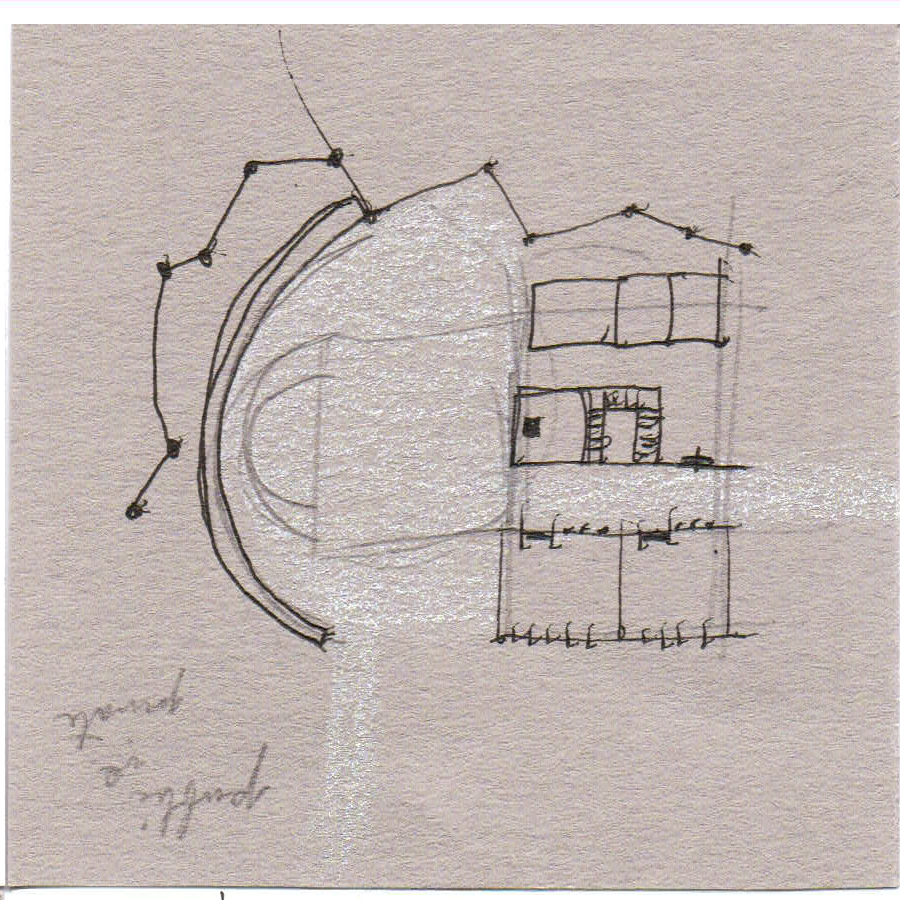 public
vs
private